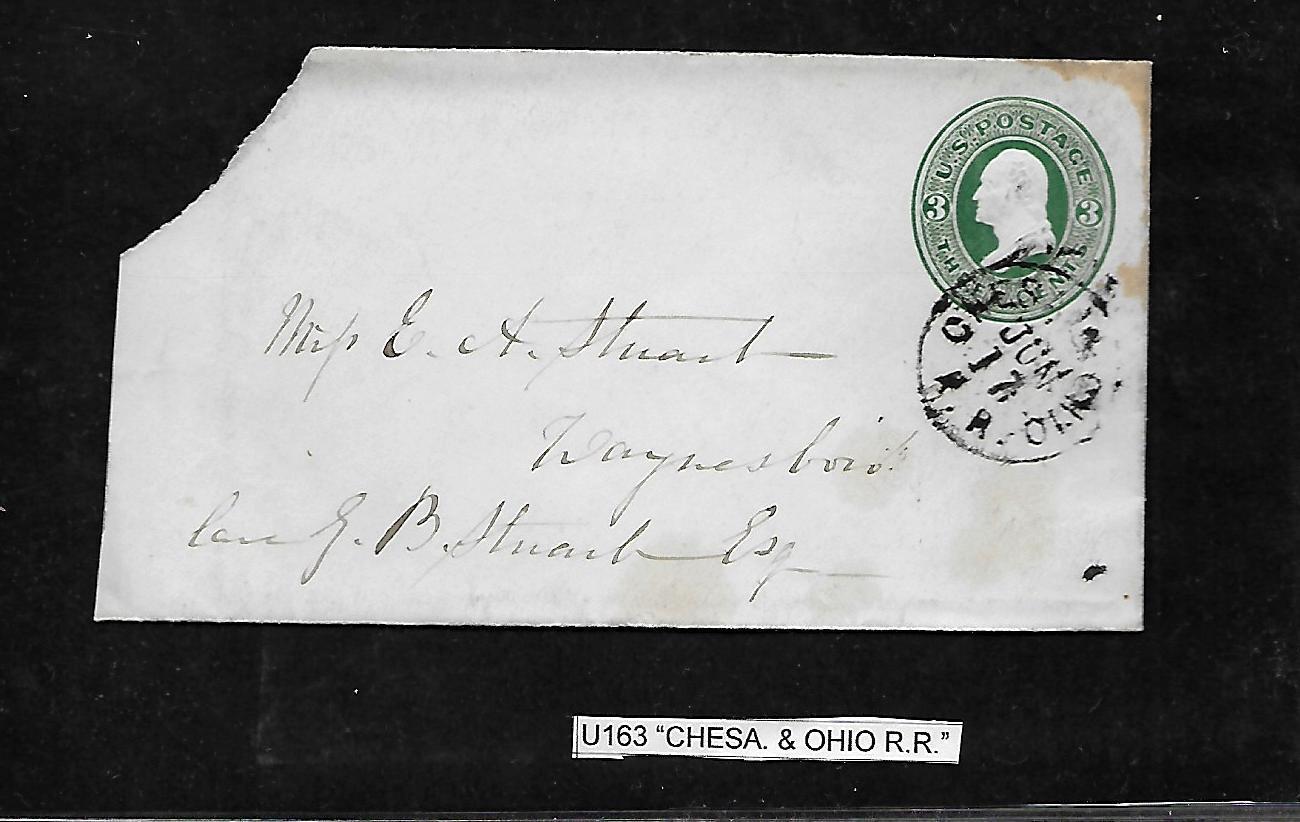 U.S. POSTAGE
3 3
THREE CENTS
JUN
17
R.R.
Miss E. A. Stuart
Waynesboro'
Care J. B. Stuart Esq
U163 "CHESA. & OHIO R.R."